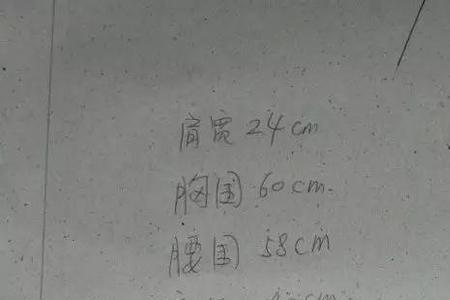 肩宽 24cm
胸围 60cm
腰围 58cm